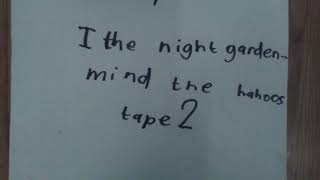 I the night garden...
mind the hahoos
tape 2